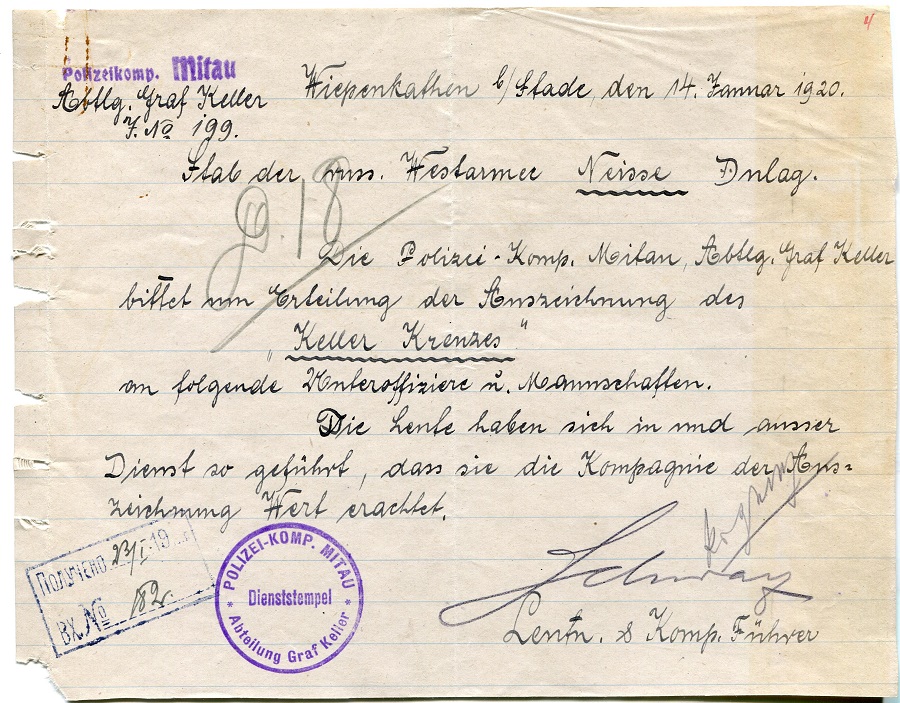 Polizeikomp. Mitau
Abtlg. Graf Keller
J. No 199.
Wiepenkathen b/Stade, den 14. Januar 1920.
Stab der russ. Westarmee Neisse Dulag.
Die Polizei-Komp. Mitau, Abtlg. Graf Keller
bittet um Erteilung der Auszeichnung des
"Keller Kreuzes"
an folgende Unteroffiziere u. Mannschaften.
Die Leute haben sich in und ausser
Dienst so geführt, dass sie die Kompagnie der Aus=
zeichnung Wert erachtet.
Получено 23/I 19
Вх. № 182.
POLIZEI-KOMP. MITAU
Dienststempel
Abteilung Graf Keller
Leutn. & Komp. Führer